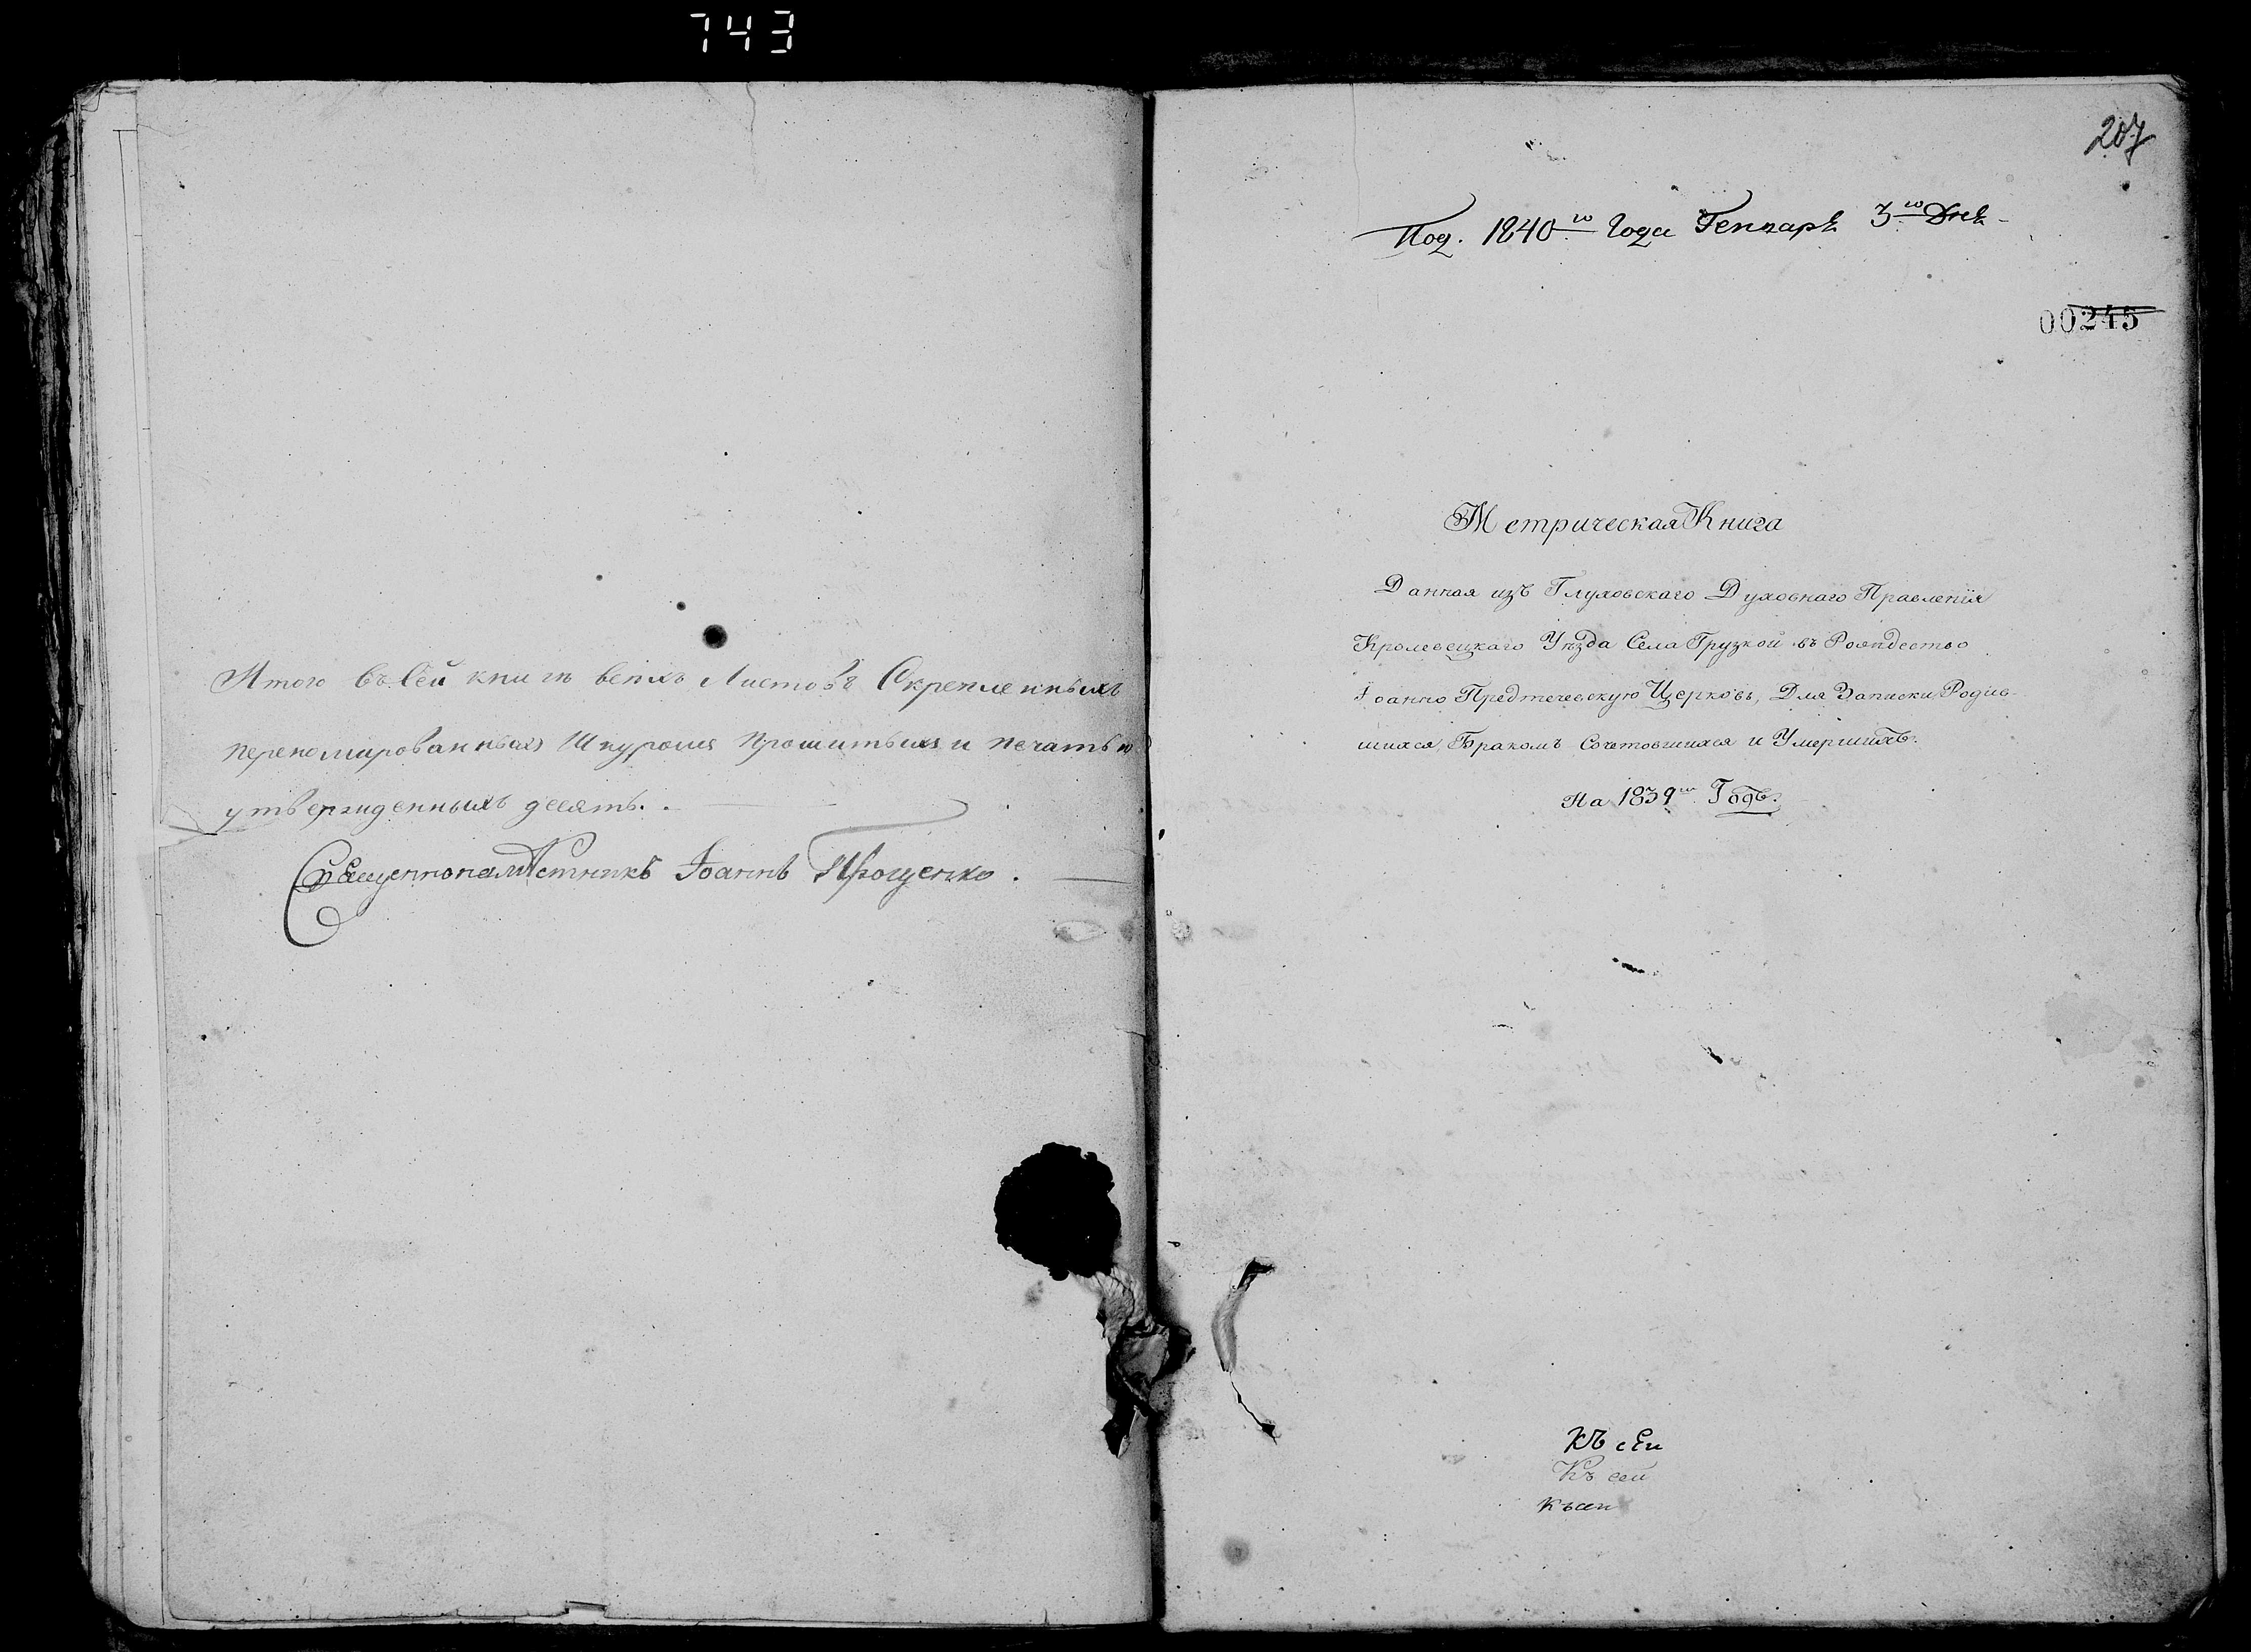 743
Итого въ Сей книгѣ всѣхъ Листовъ Скрепленныхъ
перепомированныхъ Шнуромъ прошитыхъ и печатью
утвержденныхъ десять.
Священнонамѣстникъ Іоаннъ Прощенко.
207
Под. 1840го Года Генваря 3го Дня
00245
Метрическая Книга
Данная изъ Глуховскаго Духовнаго Правленія
Кролевецкаго Уѣзда Села Грузкой въ Рождество
Іоанно Предтечевскую Церковь, Для Записки Родив-
шихся, Бракомъ Сочетовшихся и Умершихъ.
На 1839й Годъ.
Къ сей
Къ сей
Къ сей